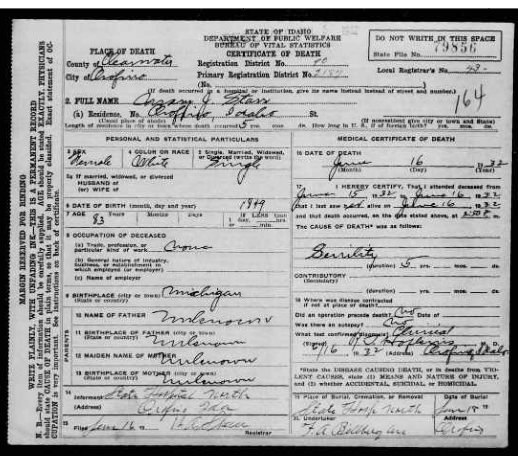 STATE OF IDAHO
DEPARTMENT OF PUBLIC WELFARE
BUREAU OF VITAL STATISTICS
CERTIFICATE OF DEATH
DO NOT WRITE IN THIS SPACE
State File No. 79856
PLACE OF DEATH
County of Clearwater
City of Orofino
Registration District No.
Primary Registration District No.
Local Registrar's No. 43
(No.
(If death occurred in a hospital or institution, give its name instead of street and number.)
164
2. FULL NAME J. Starr
(a) Residence. No. Orofino, Idaho St.
(Usual place of abode)
(If nonresident give city or town and State)
Length of residence in city or town where death occurred 5 yrs. mos. ds. How long in U. S., if of foreign birth? yrs. mos. ds.
PERSONAL AND STATISTICAL PARTICULARS
3 SEX
Female
4 COLOR OR RACE
White
5 Single, Married, Widowed, or Divorced (write the word)
Single
5a If married, widowed, or divorced
HUSBAND of
(or) WIFE of
6 DATE OF BIRTH (month, day and year) 1849
7 AGE 83 Years Months Days If LESS than
8 OCCUPATION OF DECEASED
(a) Trade, profession, or particular kind of work None
(b) General nature of industry, business, or establishment in which employed (or employer)
(c) Name of employer
9 BIRTHPLACE (city or town) Michigan
(State or country)
PARENTS
10 NAME OF FATHER Unknown
11 BIRTHPLACE OF FATHER
(State or country) Unknown
12 MAIDEN NAME OF MOTHER Unknown
13 BIRTHPLACE OF MOTHER
(State or country) Unknown
14 Informant State Hospital North
(Address) Orofino Idaho
15 Filed June 16
Registrar
MEDICAL CERTIFICATE OF DEATH
16 DATE OF DEATH
June 16 1932
(Month) (Day) (Year)
17 I HEREBY CERTIFY, That I attended deceased from
15 32 to June 16 32
that I last saw alive on June 16 32
and that death occurred, on the date stated above, at
The CAUSE OF DEATH* was as follows:
Senility
(duration) 5 yrs. mos. ds.
CONTRIBUTORY
(Secondary)
(duration) yrs. mos. ds.
18 Where was disease contracted
if not at place of death?
Did an operation precede death? No Date of
Was there an autopsy? No
What test confirmed diagnosis? Clinical
(Signed) Hopkins
6/16 32 (Address) Orofino Idaho
*State the DISEASE CAUSING DEATH, or in deaths from VIOLENT CAUSES, state (1) MEANS AND NATURE OF INJURY, and (2) whether ACCIDENTAL, SUICIDAL, or HOMICIDAL.
19 Place of Burial, Cremation, or Removal Date of Burial
State Hosp North June 18
20 Undertaker Address
F. A. Orofino
MARGIN RESERVED FOR BINDING
WRITE PLAINLY, WITH UNFADING INK—THIS IS A PERMANENT RECORD
N. B.—Every item of information should be carefully supplied. AGE should be stated EXACTLY. PHYSICIANS should state CAUSE OF DEATH in plain terms, so that it may be properly classified. Exact statement of OCCUPATION is very important. See instructions on back of certificate.